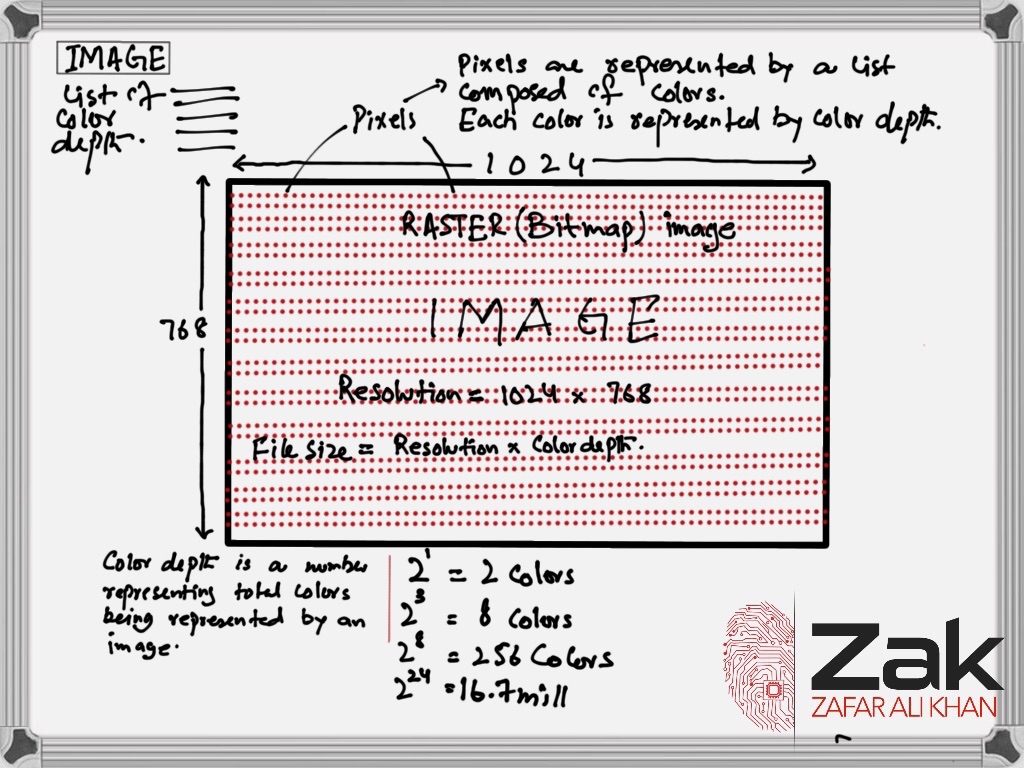 IMAGE
List of
color
depth.
Pixels
Pixels are represented by a List
composed of colors.
Each color is represented by color depth.
1024
768
RASTER (Bitmap) image
IMAGE
Resolution = 1024 x 768
File size = Resolution x Color depth.
Color depth is a number
representing total colors
being represented by an
image.
2^1 = 2 Colors
2^3 = 8 Colors
2^8 = 256 Colors
2^24 = 16.7 mill
Zak
ZAFAR ALI KHAN